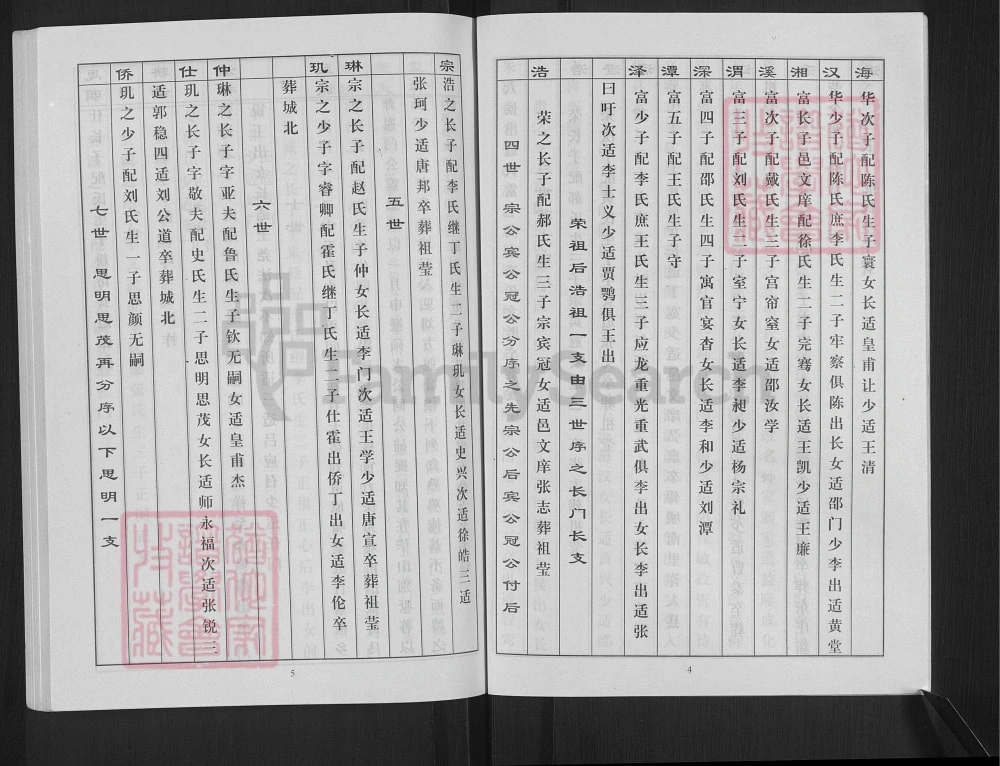 海 华次子配陈氏生子寰女长适皇甫让少适王清
汉 华少子配陈氏庶李氏生二子牢察俱陈出长女适邵门少李出适黄堂
湘 富长子邑文庠配徐氏生二子完骞女长适王凯少适王廉
溪 富次子配戴氏生三子宫帘窒女适邵汝学
渭 富三子配刘氏生二子室宁女长适李昶少适杨宗礼
深 富四子配邵氏生四子寓官宴杳女长适李和少适刘潭
潭 富五子配王氏生子守
泽 富少子配李氏庶王氏生三子应龙重光重武俱李出女长李出适张
曰吁次适李士义少适贾鹗俱王出
荣祖后浩祖一支由三世序之长门长支
浩 荣之长子配郝氏生三子宗宾冠女适邑文庠张志葬祖莹
四世 宗公宾公冠公分序之先宗公后宾公冠公付后
4
宗 浩之长子配李氏继丁氏生二子琳玑女长适史兴次适徐皓三适
张珂少适唐邦卒葬祖莹
五世
琳 宗之长子配赵氏生子仲女长适李门次适王学少适唐宣卒葬祖莹
玑 宗之少子字睿卿配霍氏继丁氏生二子仕霍出侨丁出女适李伦卒
葬城北
六世
仲 琳之长子字亚夫配鲁氏生子钦无嗣女适皇甫杰
仕 玑之长子字敬夫配史氏生二子思明思茂女长适师永福次适张锐三
适郭稳四适刘公道卒葬城北
侨 玑之少子配刘氏生一子思颜无嗣
七世 思明思茂再分序以下思明一支
5
FamilySearch